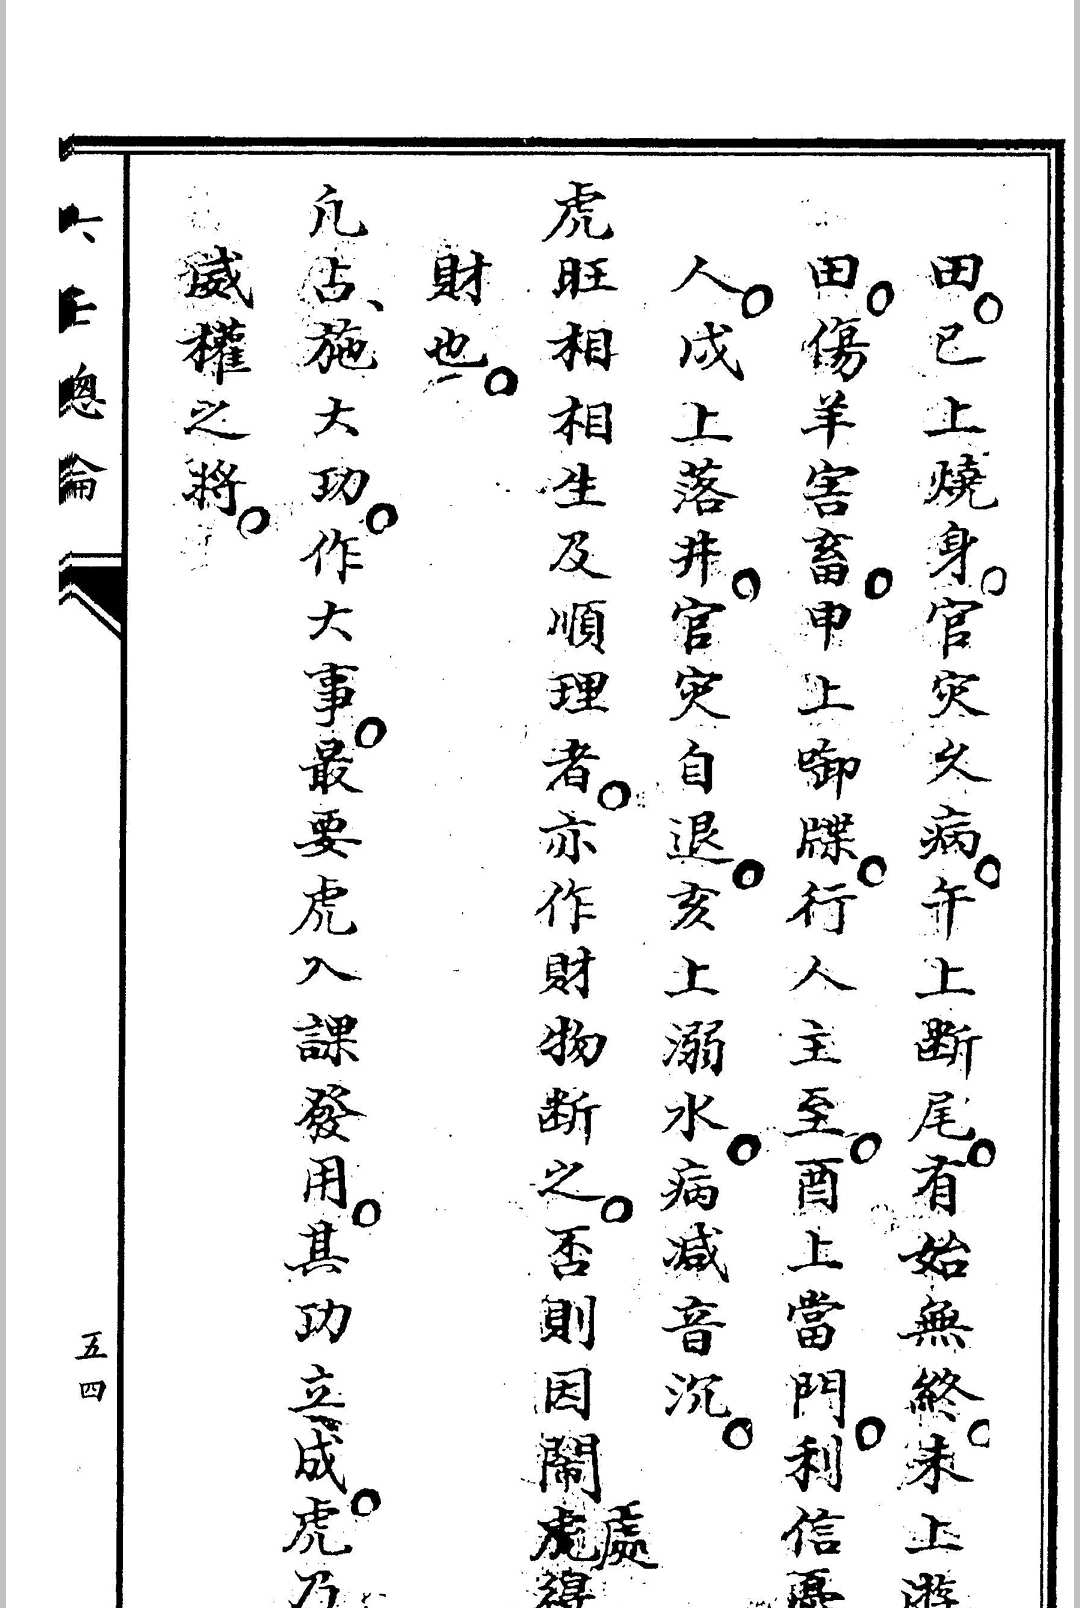 田。巳上燒身。官灾久病。午上断尾。有始無終。未上遊
田。傷羊害畜。申上啣牒。行人主至。酉上當門。利信憂
人。戌上落井。官灾自退。亥上溺水。病减音沉。
虎旺相相生及順理者。亦作財物断之。否則因鬧處得
財也。
凡占、施大功。作大事。最要虎入課發用。其功立成。虎乃
威權之將。
六壬總論
五四